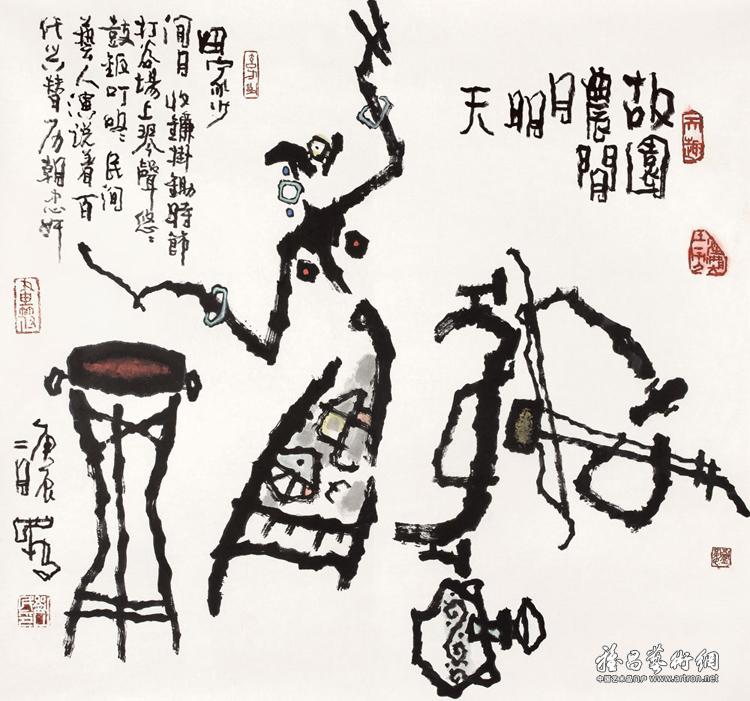 故園
農間
月
明
天
田家少
閒月收鐮掛鋤時節
打谷場上琴聲悠〻
鼓鈸叮咚〻民间
藝人演說着百
代興替历朝忠奸
庚辰
二月
雅昌藝術網
中国艺术品门户 www.artron.net